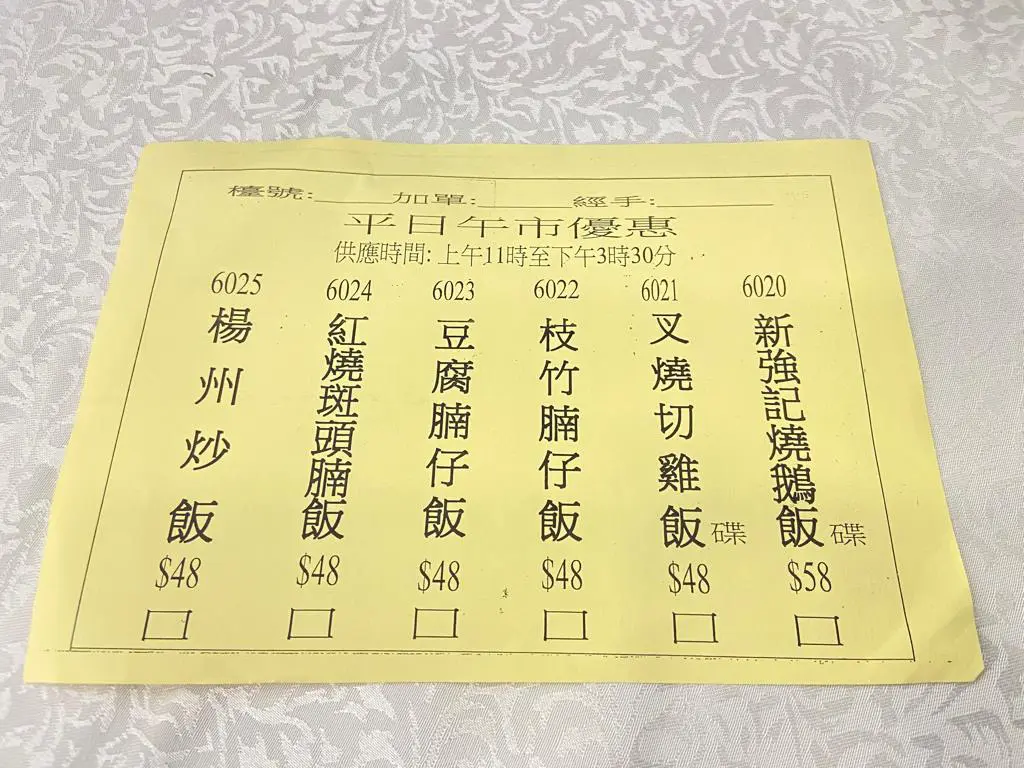 檯號: 加單: 經手:
平日午市優惠
供應時間: 上午11時至下午3時30分
6020
新強記燒鵝飯 碟
$58
6021
叉燒切雞飯 碟
$48
6022
枝竹腩仔飯
$48
6023
豆腐腩仔飯
$48
6024
紅燒斑頭腩飯
$48
6025
楊州炒飯
$48